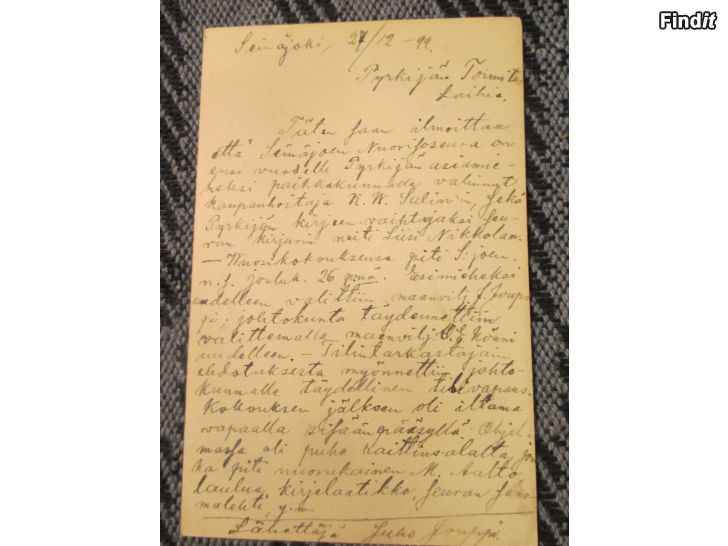 Findit
Seinäjoki, 27/12 -99.
Pyrkijän Toimitus
Laihia.
Täten saan ilmoittaa
että Seinäjoen Nuorisoseura on
ensi vuodelle Pyrkijän asiamie-
heksi paikkakunnalla valinnut
kaupanhoitaja K. W. Salinin, sekä
Pyrkijän kirjeen-vaihtajaksi seu-
ran kirjurin neiti Liisi Nikkolan.
— Wuosikokouksensa piti S:joen
n.s. jouluk. 26 p:nä. Esimieheksi
uudelleen valittiin maanvilj. J. Jouppi
johtokunta täydennettiin
valittemalla maanvilj.
uudelleen. — Tilintarkastajain
ehdotuksesta myönnettiin johto-
kunnalle täydellinen tilivapaus.
Kokouksen jälkeen oli iltama
vapaalla sisäänpääsyllä. Ohjel-
massa oli puhe raittius-alalta, jon
ka piti nuorukainen M. Aalto
laulua, kirjelaatikko, seuran sano-
malehti, y.m.
Lähettäjä Juho Jouppi.